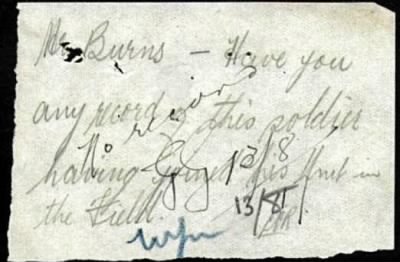 Mr. Burns — Have you
any record of this soldier
having joined his Unit in
the Field.
No record
13/8
13/8/